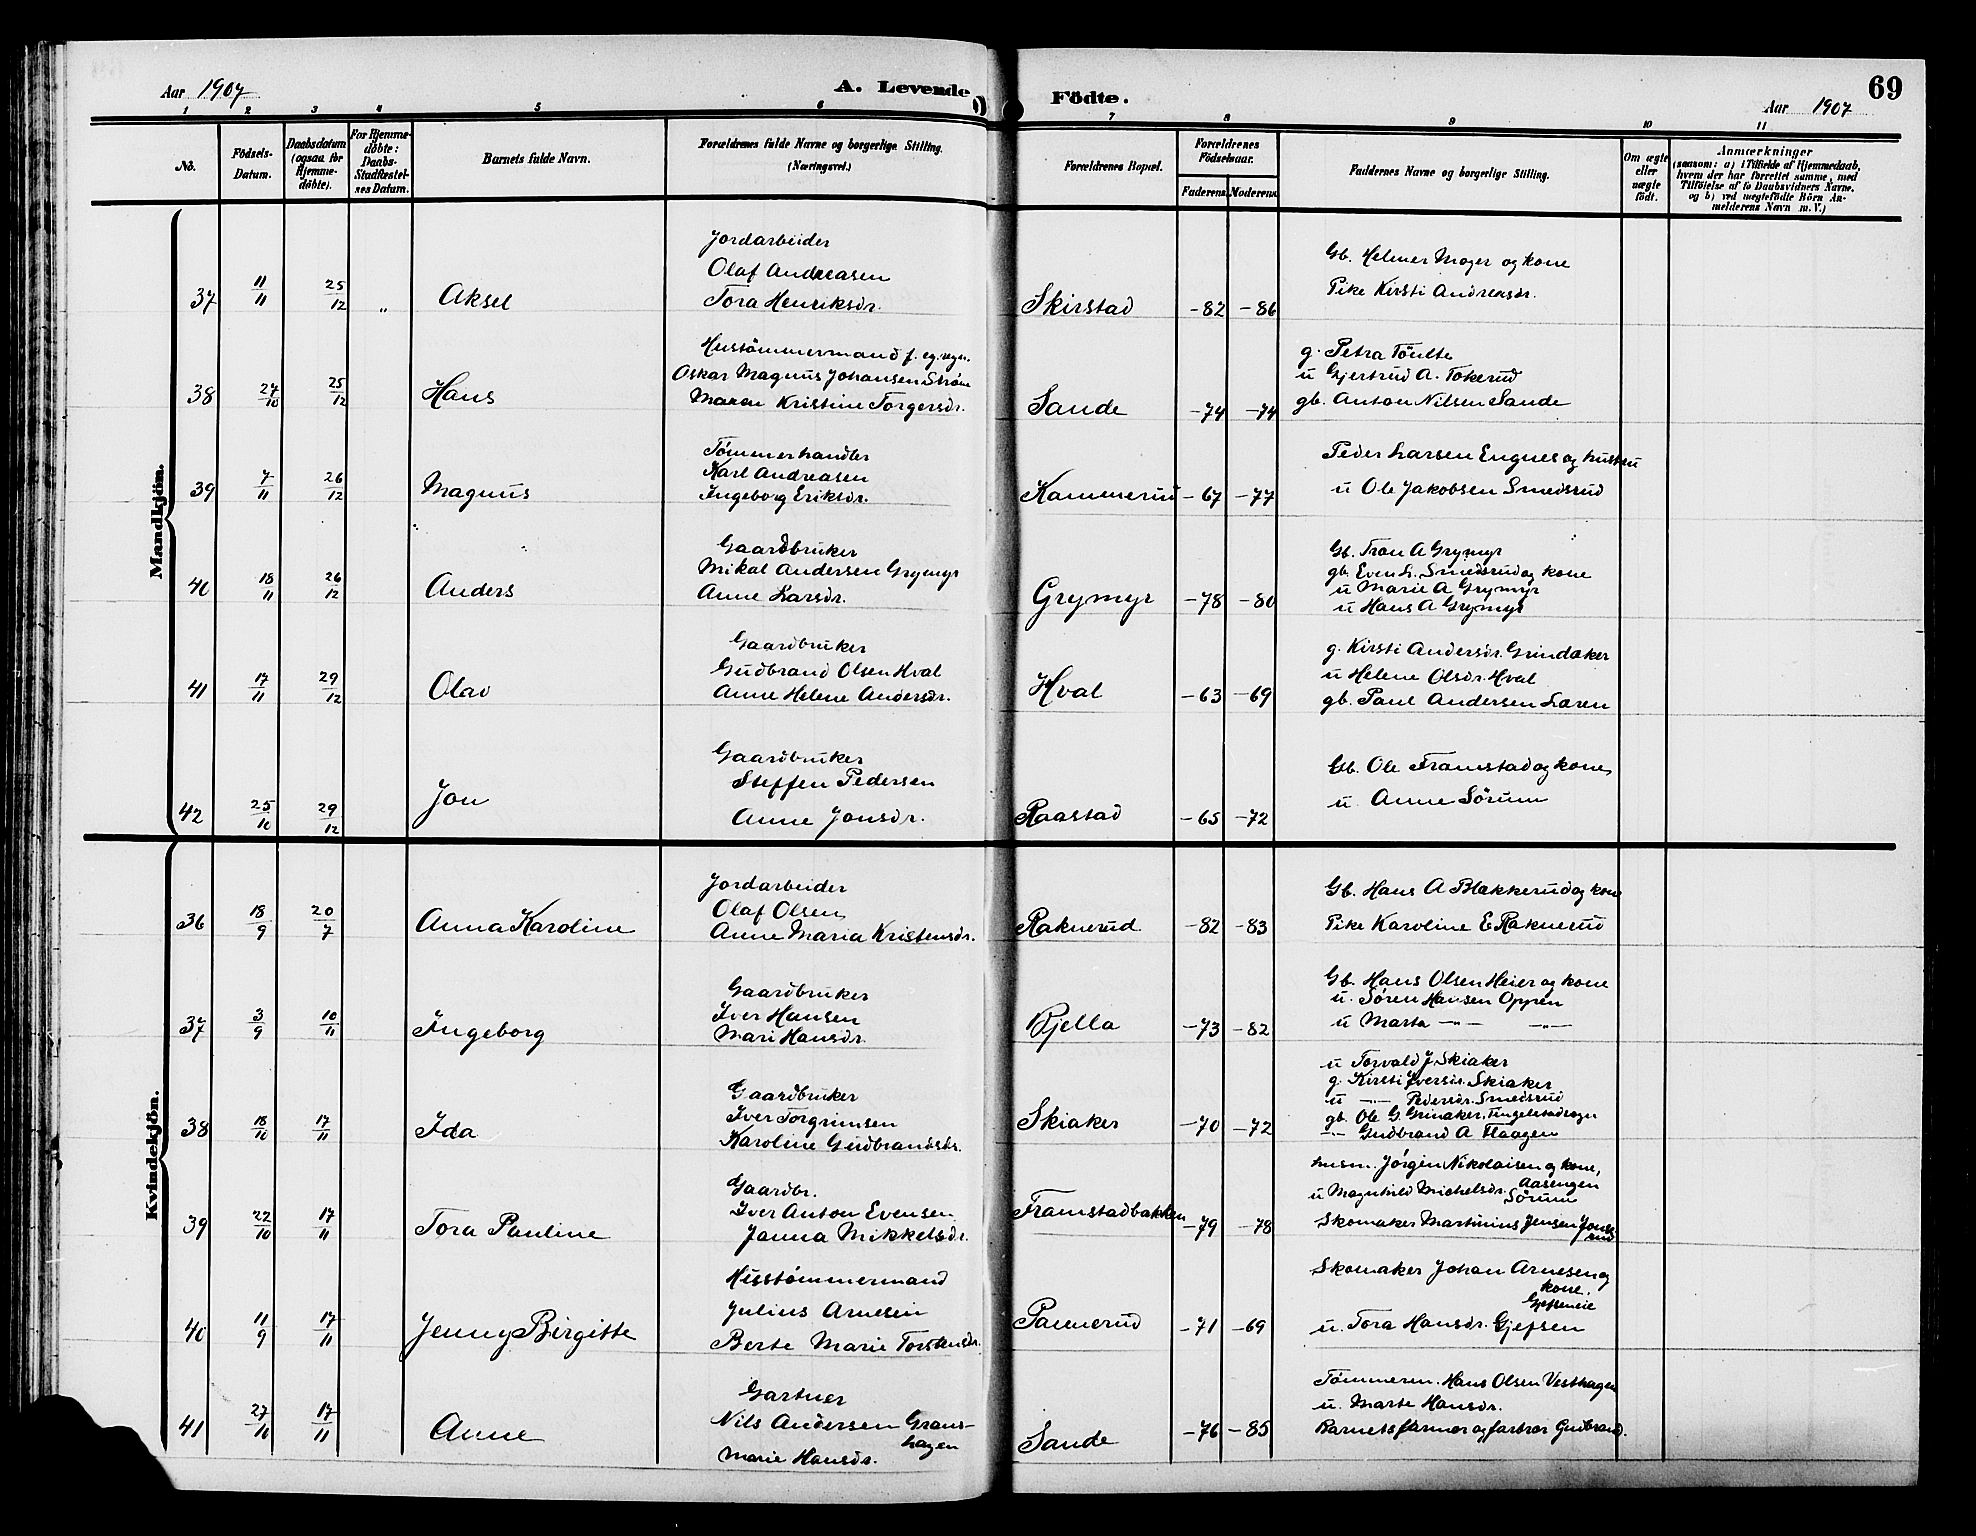 Aar 1907
A. Levende Födte.
69
Aar 1907
1 2 3 4 5 6 7 8 9 10 11
No.
Födsels-Datum.
Daabsdatum (ogsaa for Hjemme-döbte).
For Hjemme-döbte: Daabs-Stadfæstel-ses Datum.
Barnets fulde Navn.
Forældrenes fulde Navne og borgerlige Stilling. (Næringsvei.)
Forældrenes Bopæl.
Forældrenes Födselsaar.
Faderens
Moderens
Faddernes Navne og borgerlige Stilling.
Om ægte eller uægte födt.
Anmærkninger
(saasom: a) i Tilfælde af Hjemmedaab,
hvem der har forrettet samme, med
Tilföielse af to Daabsvidners Navne.
og b) ved uægtefödte Börn An-
melderens Navn m. V.)
Mandkjön.
37 11/11 25/12 „ Aksel
Jordarbeider
Olaf Andreasen
Tora Henriksdr.
Skirstad -82 -86
Gb. Helmer Moger og kone
Pike Kirsti Andreasdr.
38 27/10 25/12 Hans
Hustømmermand f. eg. regn.
Oskar Magnus Johansen Strøm
Maren Kristine Torgersdr.
Sande -74 -74
g. Petra Töulte
u Gjertrud A. Tokerud
gb. Anton Nilsen Sande
39 7/11 26/12 Magnus
Tømmerhandler
Karl Andreasen
Ingeborg Eriksdr.
Kammerud -67 -77
Peder Larsen Engnes og hustru
u Ole Jakobsen Smedsrud
40 18/11 26/12 Anders
Gaardbruker
Mikal Andersen Grymyr
Anne Larsdr.
Grymyr -78 -80
Gb. Tron A Grymyr
gb. Even L. Smedsrud og kone
u Marie A Grymyr
u Hans A Grymyr
41 17/11 29/12 Olav
Gaardbruker
Gudbrand Olsen Hval
Anne Helene Andersdr.
Hval -63 -69
g. Kirsti Andersdr. Grindaker
u Helene Olsdr. Hval
gb. Paul Andersen Laren
42 25/10 29/12 Jon
Gaardbruker
Steffen Pedersen
Anne Jonsdr.
Raastad -65 -72
Gb. Ole Framstad og kone
u. Anne Sörum
Kvindekjön.
36 18/9 20/7 Anna Karoline
Jordarbeider
Olaf Olsen
Anne Maria Kristensdr.
Raknerud -82 -83
Gb. Hans A Blakkerud og kone
Pike Karoline E Raknerud
37 3/9 10/11 Ingeborg
Gaardbruker
Iver Hansen
Mari Hansdr.
Bjella -73 -82
Gb. Hans Olsen Heier og kone
u. Søren Hansen Oppen
u Marta —„— —„—
38 18/10 17/11 Ida
Gaardbruker
Iver Torgrimsen
Karoline Gudbrandsdr.
Skiaker -70 -72
u Torvald J Skiaker
g. Kirsti Iversdr. Skiaker
u —„— Pedersdr. Smedsrud
gb. Ole G Grinaker, Tingelstadsogn
—„— Gudbrand A Flaagen
39 22/10 17/11 Tora Pauline
Gaardbr.
Iver Anton Evensen
Janna Mikkelsdr.
Framstadbakken -79 -78
husm. Jörgen Nikolaisen og kone, Aasengen
u Magnhild Michelsdr. Sörum
Skomaker Martinius Jensen Jonsrud
40 11/9 17/11 Jenny Birgitte
Husstømmermand
Julius Arnesen
Berte Marie Torstensdr.
Pannerud -71 -69
Skomaker Johan Arnesen og
kone.
Gjefseneie
u. Tora Hansdr. Gjefsen
41 27/10 17/11 Anne
Gartner
Nils Andersen Grans-
hagen
Marie Hansdr.
Sande -76 -85
Tømmerm. Hans Olsen Vesthagen
u. Marte Hansdr.
Barnets farmor og farbror Gudbrand.